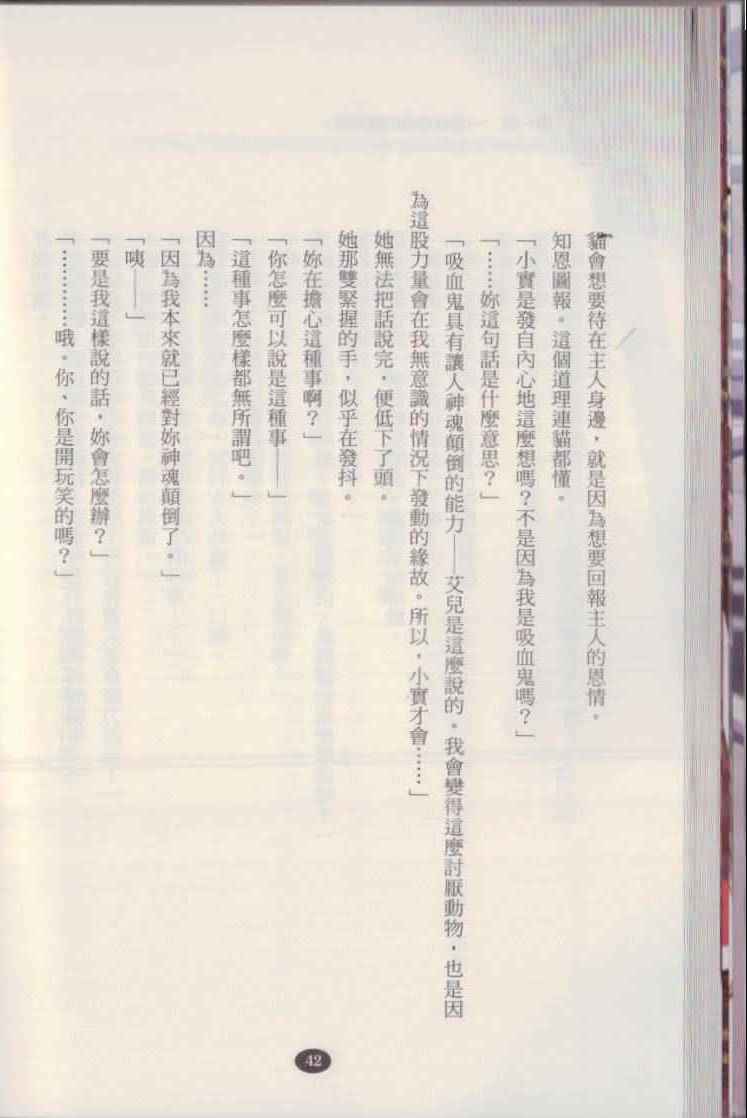 貓會想要待在主人身邊，就是因為想要回報主人的恩情。
知恩圖報。這個道理連貓都懂。
「小實是發自內心地這麼想嗎？不是因為我是吸血鬼嗎？」
「……妳這句話是什麼意思？」
「吸血鬼具有讓人神魂顛倒的能力——艾兒是這麼說的。我會變得這麼討厭動物，也是因
為這股力量會在我無意識的情況下發動的緣故。所以，小實才會……」
她無法把話說完，便低下了頭。
她那雙緊握的手，似乎在發抖。
「妳在擔心這種事啊？」
「你怎麼可以說是這種事——」
「這種事怎麼樣都無所謂吧。」
因為……
「因為我本來就已經對妳神魂顛倒了。」
「咦——」
「要是我這樣說的話，妳會怎麼辦？」
「…………哦。你、你是開玩笑的嗎？」
42